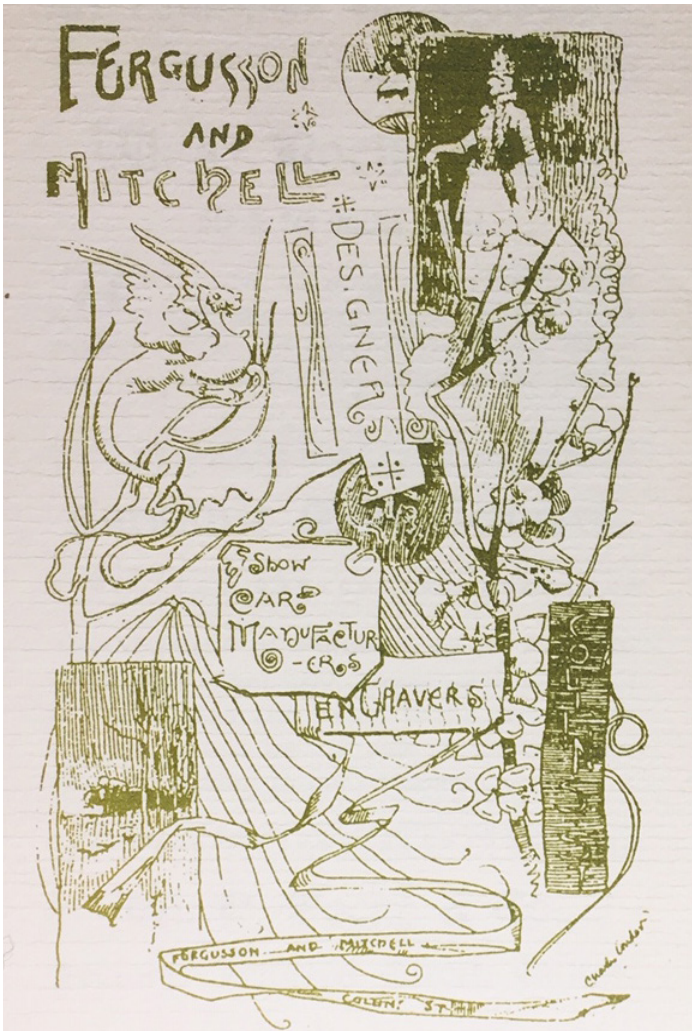 FERGUSSON
AND
MITCHELL
DESIGNERS
& Show
CARD
MANUFACTUR-
-ERS
ENGRAVERS
COLLINS ST
FERGUSSON AND MITCHELL
COLLINS ST
Charles Conder